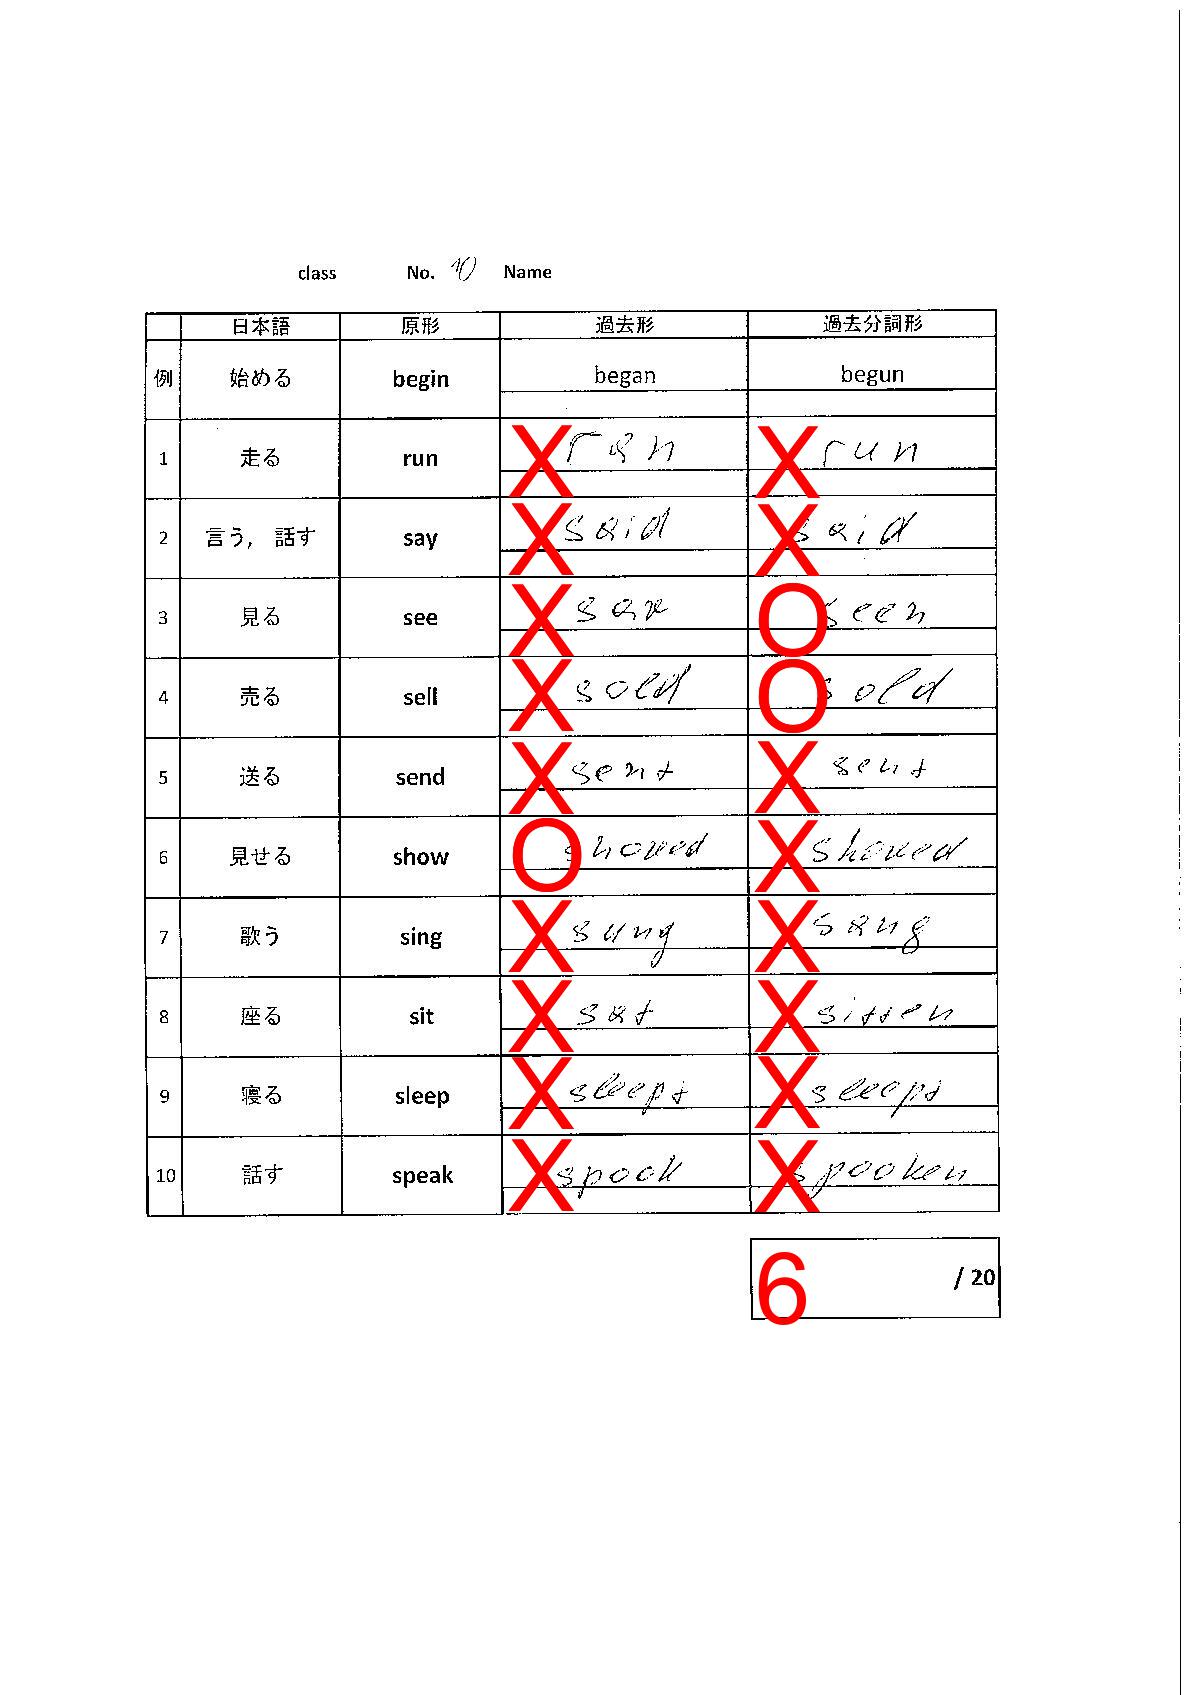 class No. 10 Name
日本語 原形 過去形 過去分詞形
例 始める begin began begun
1 走る run X ran X run
2 言う, 話す say X said X said
3 見る see X saw O seen
4 売る sell X sold O sold
5 送る send X sent X sent
6 見せる show O showed X showed
7 歌う sing X sung X sang
8 座る sit X sat X sitten
9 寝る sleep X sleept X sleept
10 話す speak X spook X spooken
6 / 20